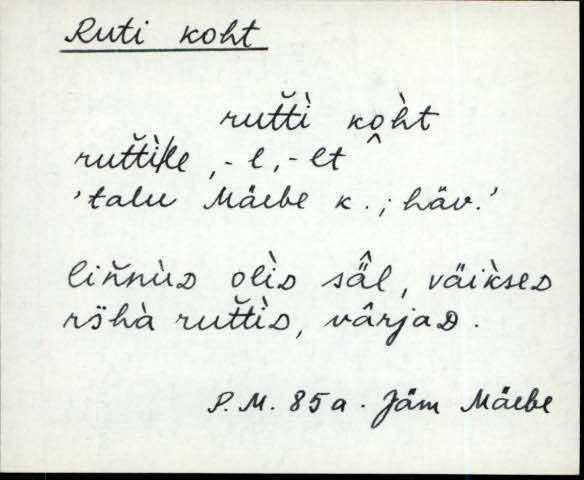 Ruti koht
rut̆t̆ì ko̭h̀t
rut̆t̆ì/le, -l, -lt
'talu Mäebe k.; häv.'
lin̆nùD olìD sä̂l, väiksèD
rö̆hà rut̆t̆ìD, vârjaD.
P.M. 85a. Jäm Mäebe